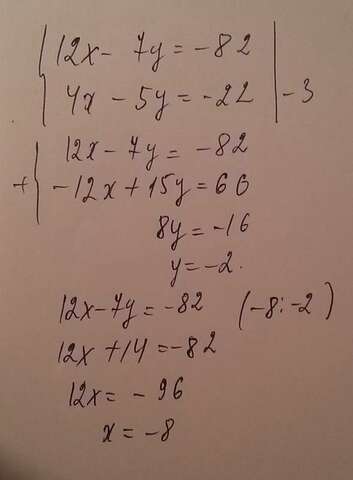 12x - 7y = -82
4x - 5y = -22 | -3
12x - 7y = -82
+ -12x + 15y = 66
8y = -16
y = -2.
12x - 7y = -82 (-8; -2)
12x + 14 = -82
12x = - 96
x = -8